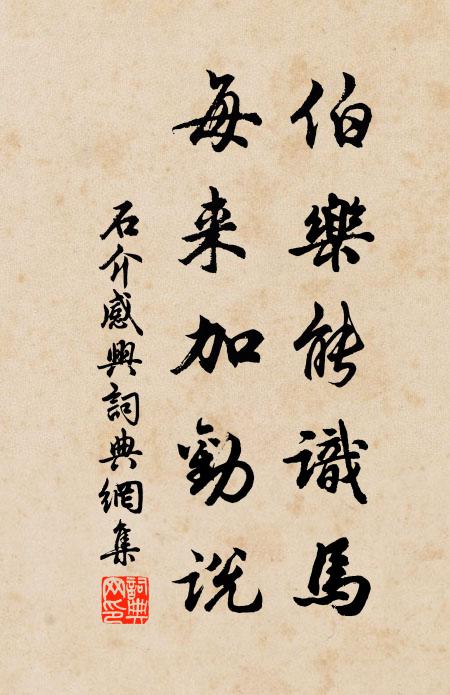 伯樂能識馬
每来加勸説
石介感興詞典網集
詞典網印